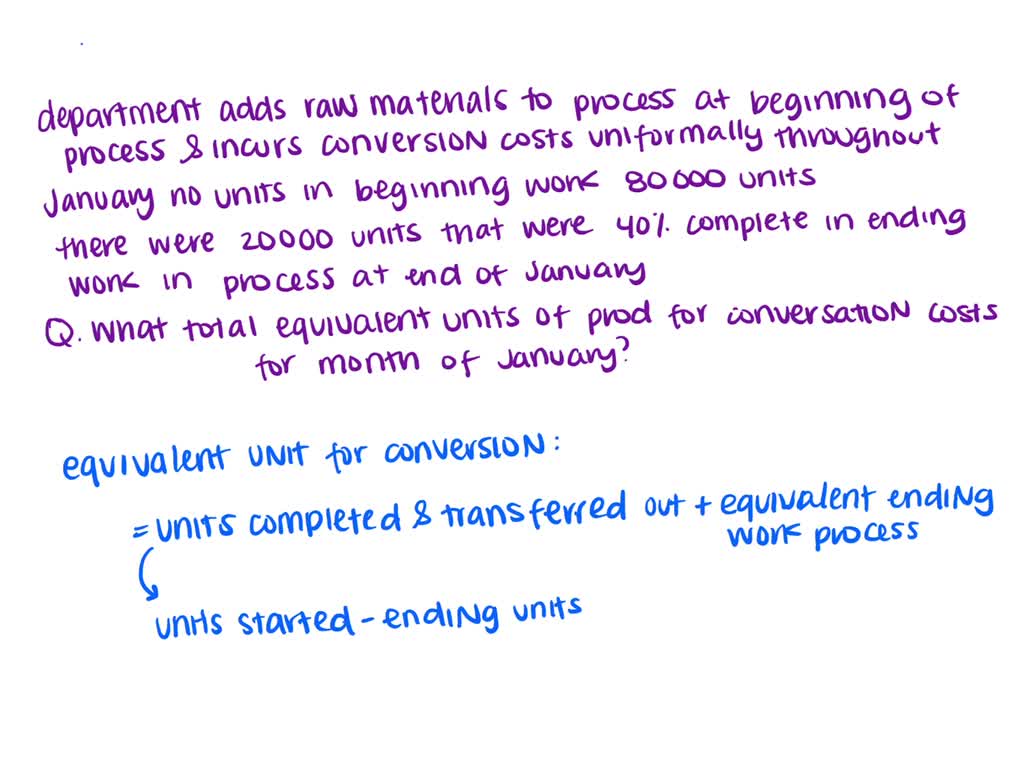 department adds raw materials to process at beginning of
process & incurs conversion costs uniformally throughout
January no units in beginning work 80000 units
there were 20000 units that were 40% complete in ending
work in process at end of January
Q. What total equivalent units of prod for conversation costs
for month of January?
equivalent unit for conversion:
= units completed & transferred out + equivalent ending
work process
units started - ending units